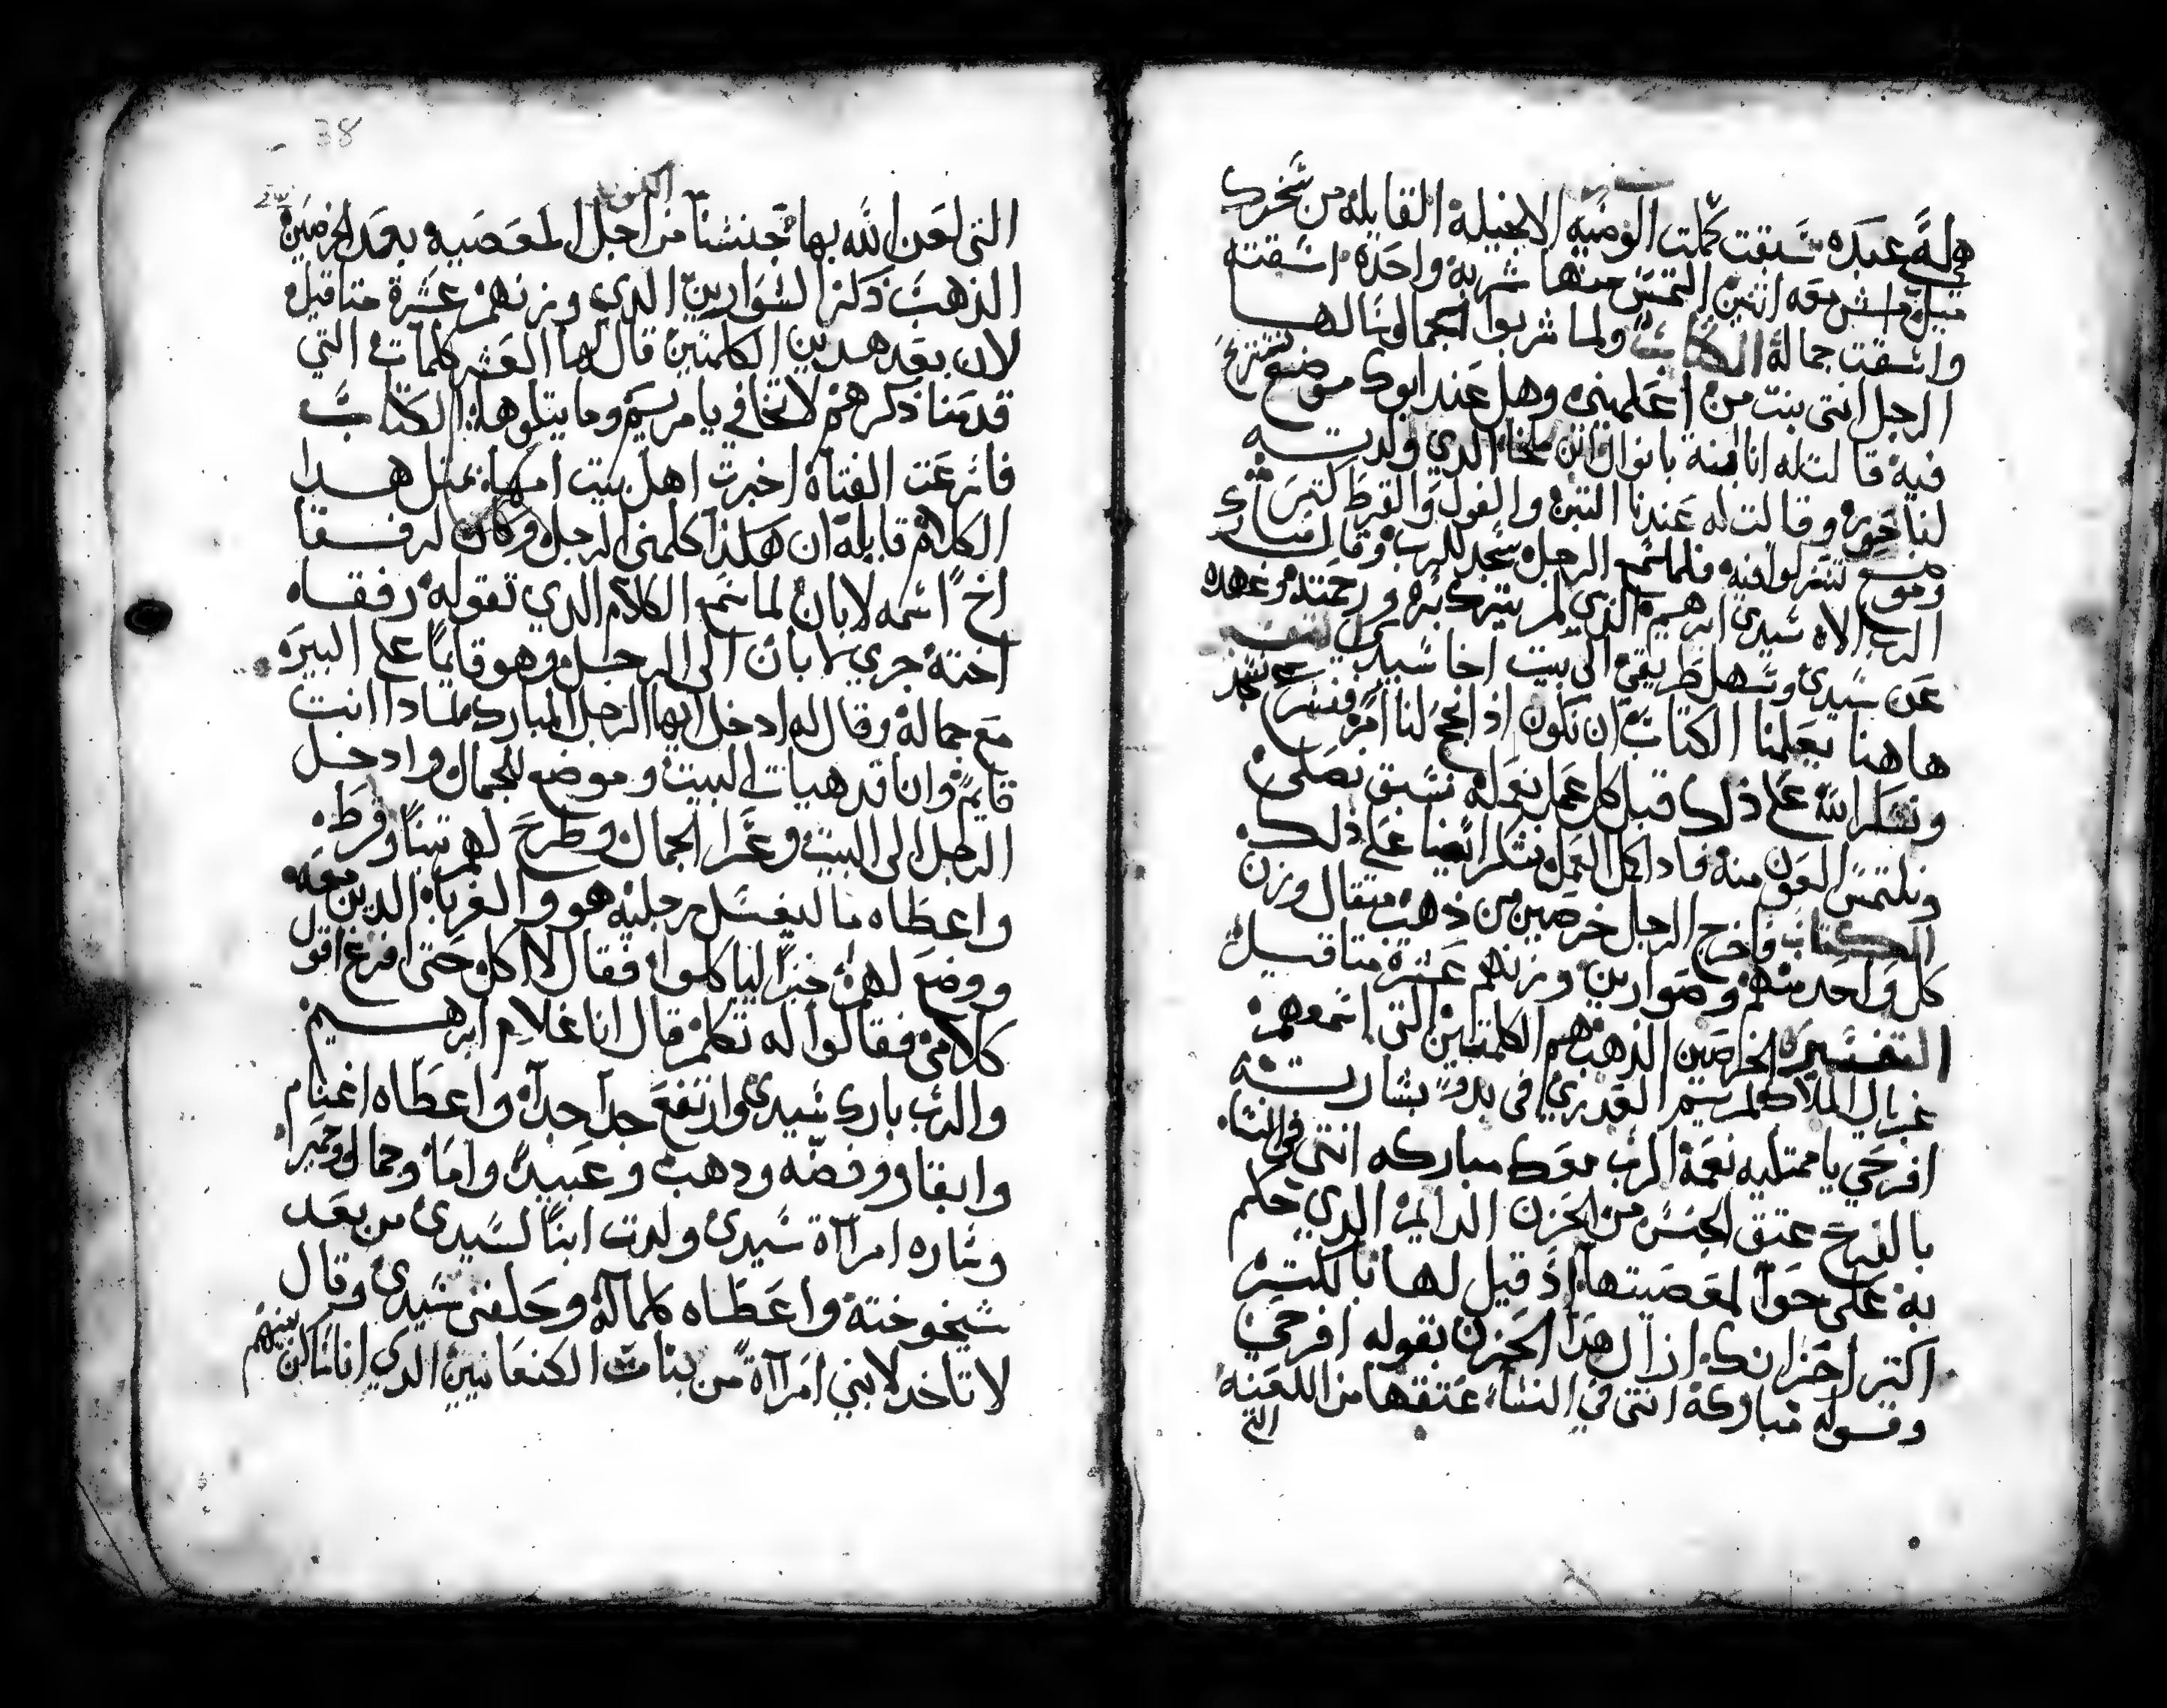 هي له عبده سبقت كملت الوصيه الانجيلية القايلة من سخرك
ميل فامش معه اتنين التمس منها شربة واحدة اسقته
واسقت جماله الكتاب ولما شربوا الجمال وسالها
الرجل انتي بنت من اعلميني وهل عند ابوك موضع نستريح
فيه قالت له انا ابنة باتوال ابن ملخا الذي ولدته
لناخور وقالت له عندنا التبن والفول والقرط كتير
وموضع تنزلوا فيه فلما سمع الرجل سجد للرب وقال مبارك
الرب الاه سيدي ابرهيم الذي لم يترك بره ورحمته وعهده
عن سيدي وسهل طريقي الى بيت اخا سيدي
هاهنا يعلمنا الكتاب ان نكون اذ انجح لنا امر فنسرع نسجد
ونشكر الله على ذلك قبل كل عمل نعمله نسبق نصلي
ونلتمس العون منه فاذا كمل العمل نشكر ايضا على ذلك
الكتاب فاخرج الرجل خرصين من ذهب متقال وزن
كل واحد منهم وصوارين وزنهم عشرة متاقيل
التفسير الخرصين الذهب هم الكلمتين التي اسمعهم
غبريال الملاك لمريم العدري في بدو بشارته
افرحي يا ممتليه نعمة الرب معك مباركه انتي في النسا
بالفرح عتق الجنس من الحزن الدايم الذي حكم
به على حوا لمعصيتها اذ قيل لها بالكترة
اكتر احزانك ازال هذا الحزن بقوله افرحي
وقوله مباركة انتي في النساء عتقها من اللعنه
التي
38
التي لعن الله بها جنسنا من اجل المعصيه بعد الخرصين
الذهب ذكر السوارين الذي وزنهم عشرة متاقيل
لان بعد هدين الكلمتين قال لها العشر كلمات التي
قدمنا ذكرهم لا تخافي يا مريم وما يتلوها الكتاب
فاسرعت الفتاة اخبرت اهل بيت امها بمثل هدا
الكلام قايلة ان هكذا كلمني الرجل وكان لرفقا
اخ اسمه لابان لما سمع الكلام الذي تقوله رفقاه
اخته جري لابان الى الرجل وهو قايما على البير
مع جماله وقال له ادخل ايها الرجل المبارك لمادا انت
قايم وانا قد هيات البيت وموضع للجمال وادخل
الرجل الى البيت وعرا الجمال وطرح لهم تبنا وقرط
واعطاه ما ليغسل رجليه هو والغرباء الدين معه
ووضع لهم خبزا لياكلوا فقال لا اكل حتى افرغ اقول
كلامي فقالوا له تكلم قال انا غلام ابرهيم
والرب بارك سيدي وارتفع جدا جدا واعطاه اغنام
وابقار وفضه ودهب وعبيد واما وجمال وحمير
وساره امراة سيدي ولدت ابنا لسيدي من بعد
شيخوخته واعطاه كلماله وحلفني سيدي وقال
لا تاخد لابني امراة من بنات الكنعانيين الدي انا ساكن بينهم